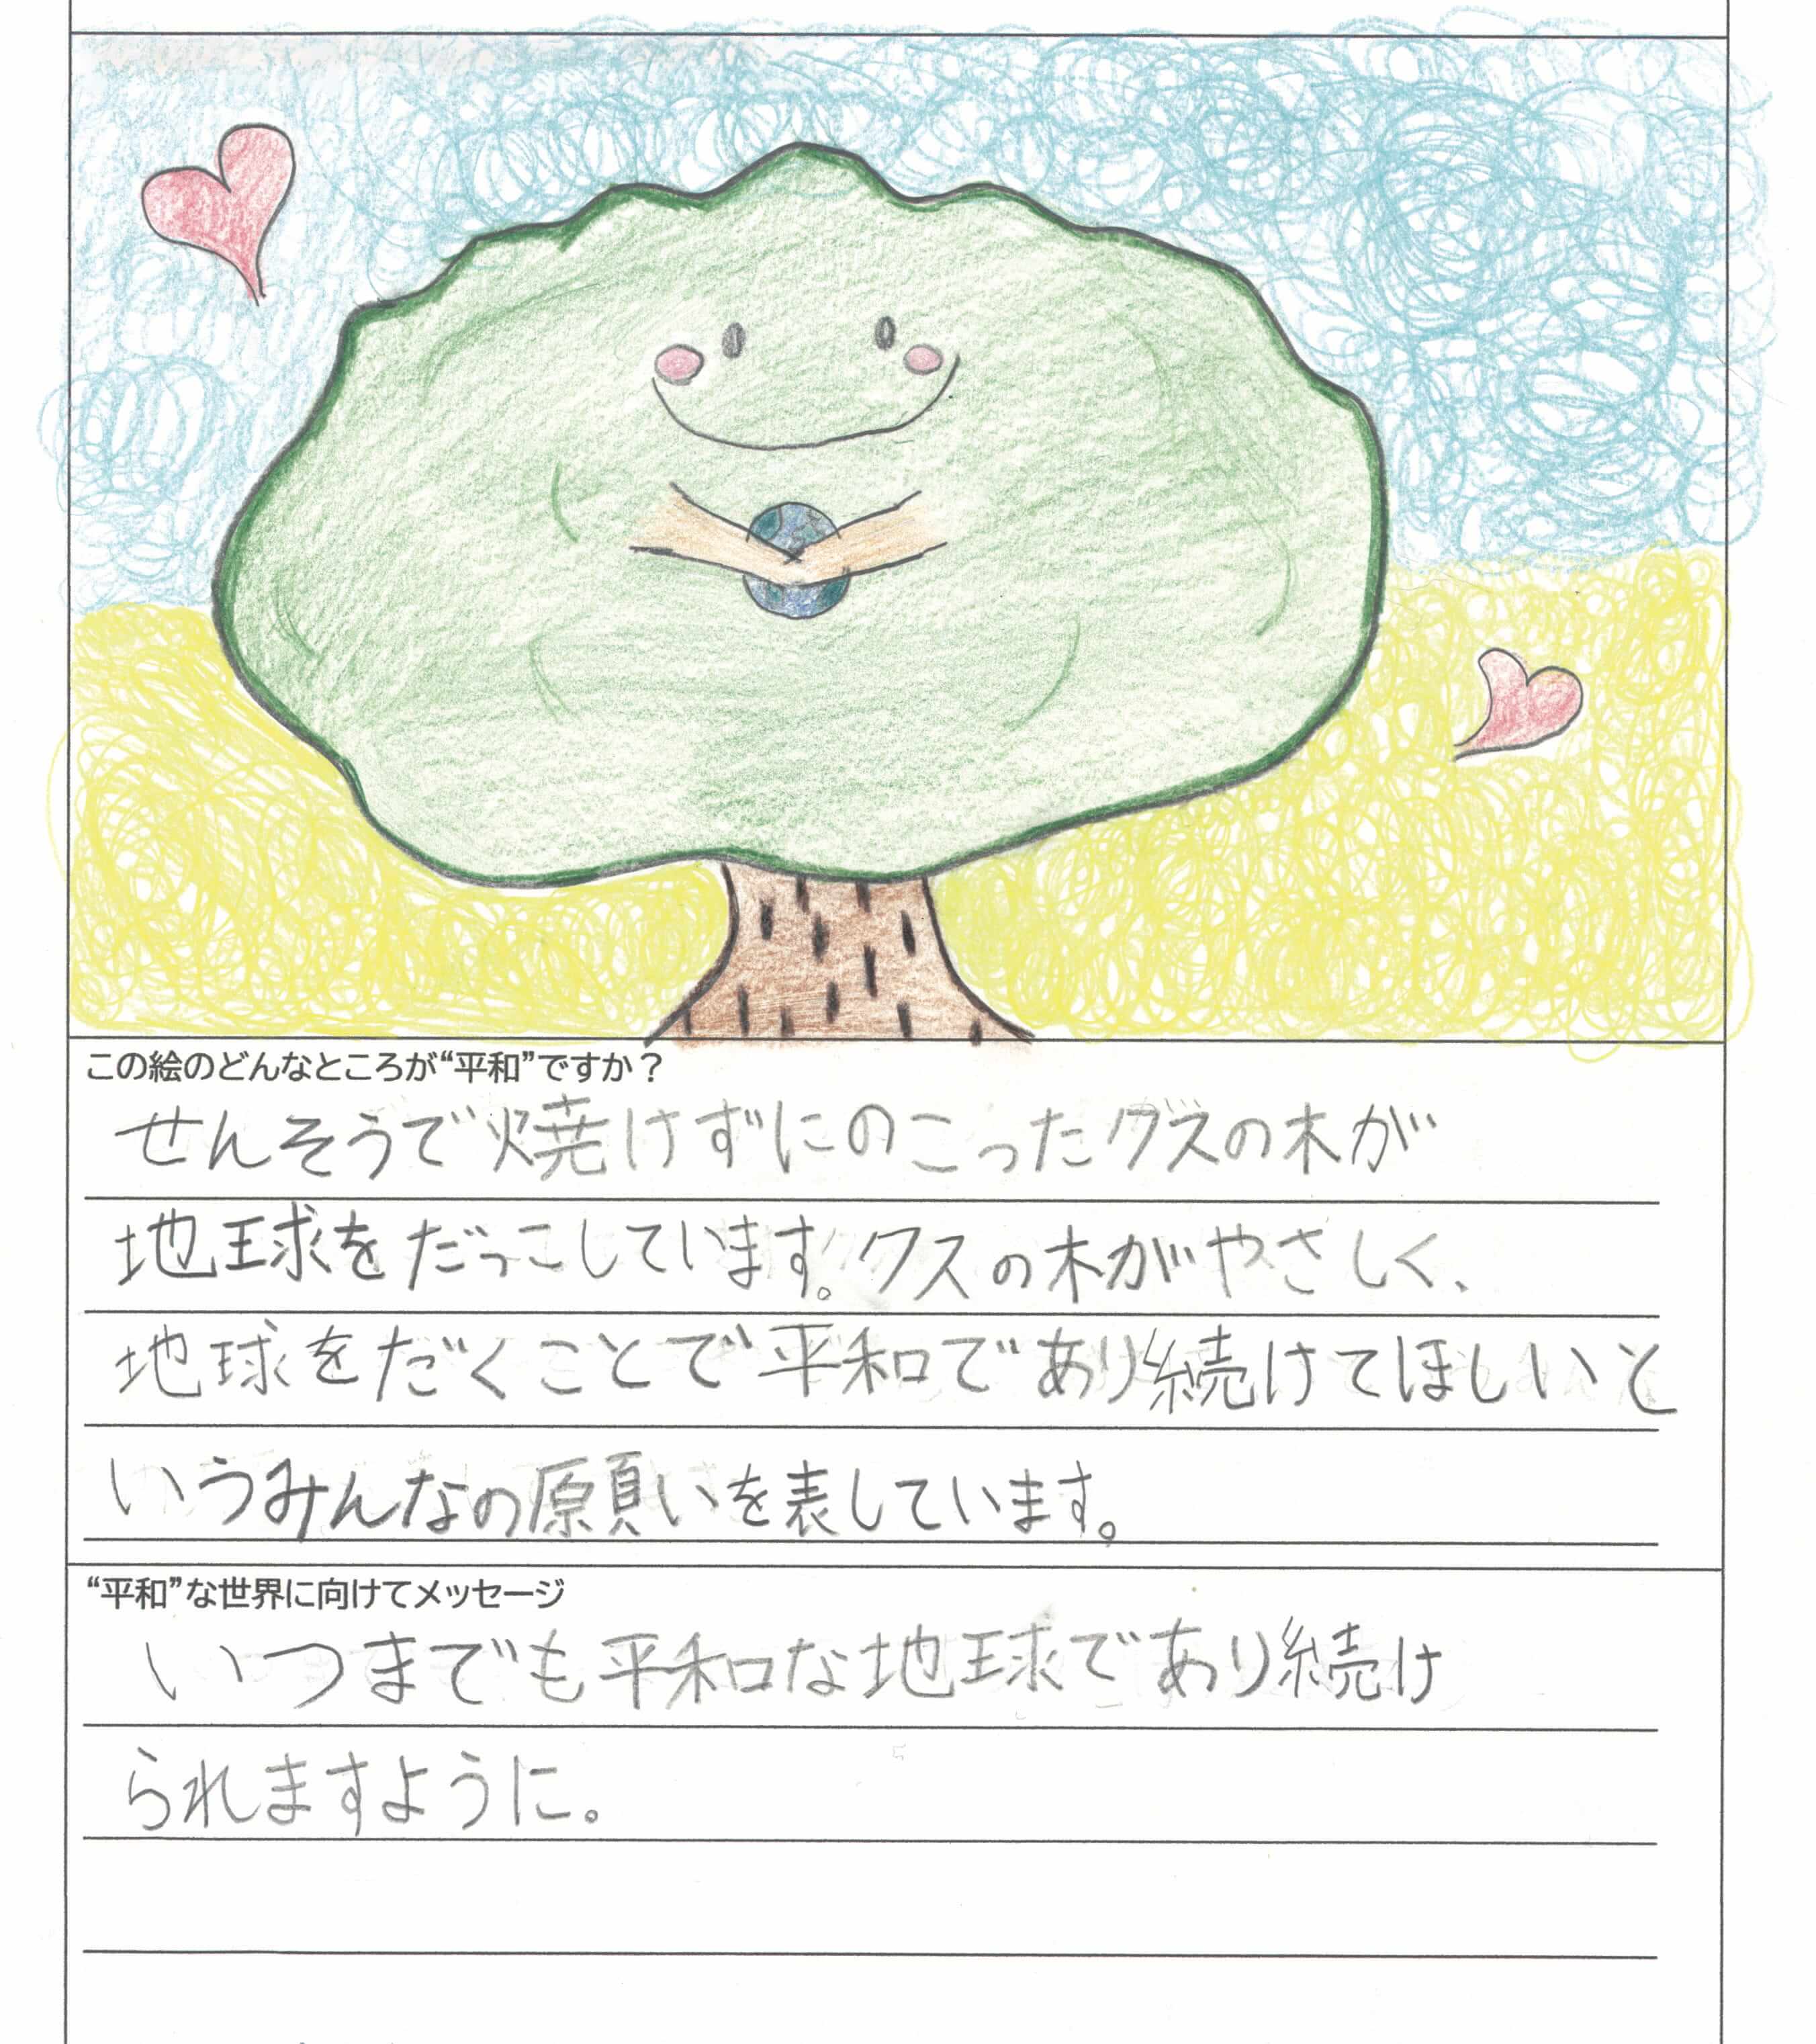 この絵のどんなところが“平和”ですか？
せんそうで焼けずにのこったクスの木が
地球をだっこしています。クスの木がやさしく、
地球をだくことで平和であり続けてほしいと
いうみんなの願いを表しています。
“平和”な世界に向けてメッセージ
いつまでも平和な地球であり続け
られますように。